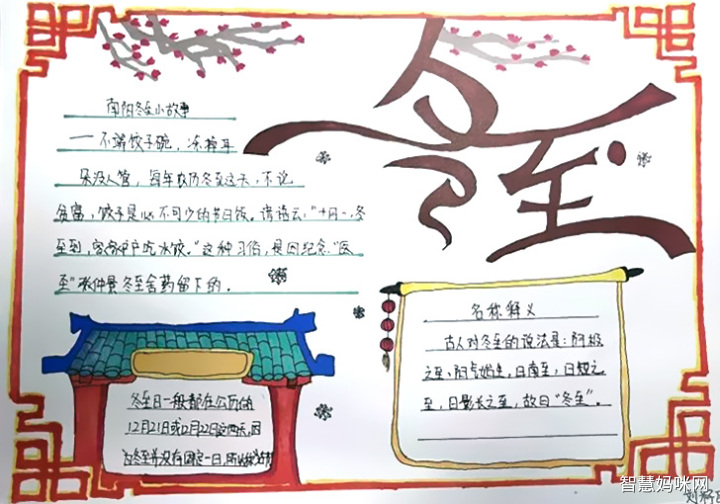 冬至
南阳冬至小故事
一不端饺子碗，冻掉耳
朵没人管，每年农历冬至这天，不说
贫富，饺子是必不可少的节日饭。谚语云："十月一，冬
至到，家家户户吃水饺。"这种习俗，是因纪念"医
至"张仲景冬至舍药留下的。
名称释义
古人对冬至的说法是：阴极
之至，阳气始生，日南至，日短之
至，日影长之至，故曰"冬至"。
冬至日一般都在公历的
12月21日或12月22日这两天，因
为冬至并没有固定一日，所以
智慧妈咪网